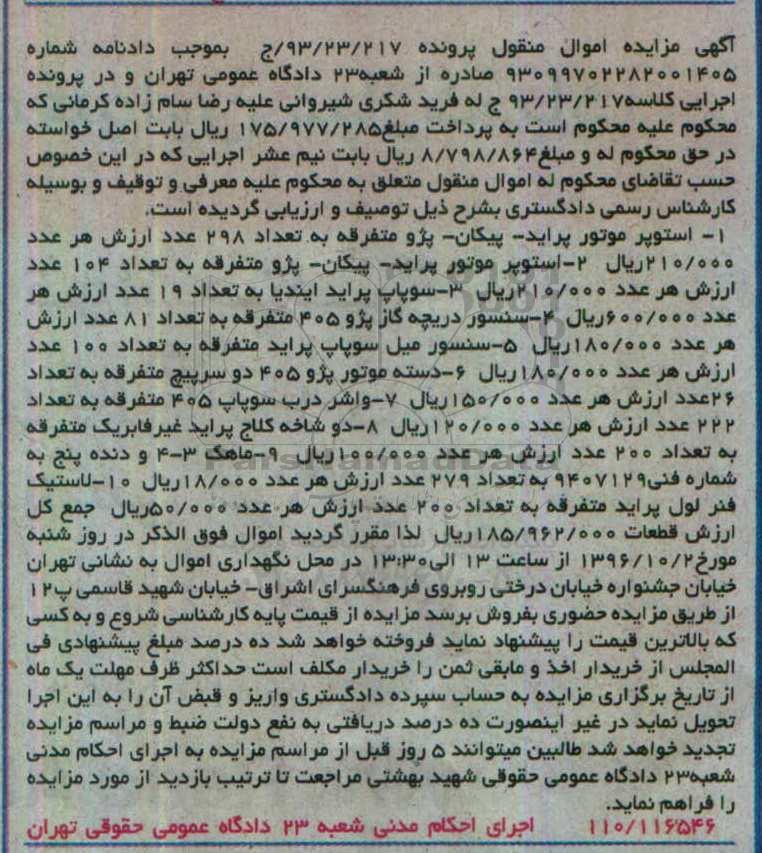 آگهی مزایده اموال منقول پرونده ۹۳/۲۳/۲۱۷/ج بموجب دادنامه شماره
۹۳۰۹۹۷۰۲۲۸۲۰۰۱۴۰۵ صادره از شعبه۲۳ دادگاه عمومی تهران و در پرونده
اجرایی کلاسه۹۳/۲۳/۲۱۷ ج له فرید شکری شیروانی علیه رضا سام زاده کرمانی که
محکوم علیه محکوم است به پرداخت مبلغ۱۷۵/۹۷۷/۲۸۵ ریال بابت اصل خواسته
در حق محکوم له و مبلغ۸/۷۹۸/۸۶۴ ریال بابت نیم عشر اجرایی که در این خصوص
حسب تقاضای محکوم له اموال منقول متعلق به محکوم علیه معرفی و توقیف و بوسیله
کارشناس رسمی دادگستری بشرح ذیل توصیف و ارزیابی گردیده است.
۱- استوپر موتور پراید- پیکان- پژو متفرقه به تعداد ۲۹۸ عدد ارزش هر عدد
۲۱۰/۰۰۰ریال ۲-استوپر موتور پراید- پیکان- پژو متفرقه به تعداد ۱۰۴ عدد
ارزش هر عدد ۲۱۰/۰۰۰ریال ۳-سوپاپ پراید ایندیا به تعداد ۱۹ عدد ارزش هر
عدد ۶۰۰/۰۰۰ریال ۴-سنسور دریچه گاز پژو ۴۰۵ متفرقه به تعداد ۸۱ عدد ارزش
هر عدد ۱۸۰/۰۰۰ریال ۵-سنسور میل سوپاپ پراید متفرقه به تعداد ۱۰۰ عدد
ارزش هر عدد ۱۸۰/۰۰۰ریال ۶-دسته موتور پژو ۴۰۵ دو سرپیچ متفرقه به تعداد
۲۶عدد ارزش هر عدد ۱۵۰/۰۰۰ریال ۷-واشر درب سوپاپ ۴۰۵ متفرقه به تعداد
۲۲۲ عدد ارزش هر عدد ۱۲۰/۰۰۰ریال ۸-دو شاخه کلاج پراید غیرفابریک متفرقه
به تعداد ۲۰۰ عدد ارزش هر عدد ۱۰۰/۰۰۰ریال ۹-ماهک ۳-۴ و دنده پنج به
شماره فنی۹۴۰۷۱۲۹ به تعداد ۲۷۹ عدد ارزش هر عدد ۱۸/۰۰۰ریال ۱۰-لاستیک
فنر لول پراید متفرقه به تعداد ۲۰۰ عدد ارزش هر عدد ۵۰/۰۰۰ریال جمع کل
ارزش قطعات ۱۸۵/۹۶۲/۰۰۰ریال لذا مقرر گردید اموال فوق الذکر در روز شنبه
مورخ۱۳۹۶/۱۰/۲ از ساعت ۱۳ الی۱۳:۳۰ در محل نگهداری اموال به نشانی تهران
خیابان جشنواره خیابان درختی روبروی فرهنگسرای اشراق- خیابان شهید قاسمی پ۱۲
از طریق مزایده حضوری بفروش برسد مزایده از قیمت پایه کارشناسی شروع و به کسی
که بالاترین قیمت را پیشنهاد نماید فروخته خواهد شد ده درصد مبلغ پیشنهادی فی
المجلس از خریدار اخذ و مابقی ثمن را خریدار مکلف است حداکثر ظرف مهلت یک ماه
از تاریخ برگزاری مزایده به حساب سپرده دادگستری واریز و قبض آن را به این اجرا
تحویل نماید در غیر اینصورت ده درصد دریافتی به نفع دولت ضبط و مراسم مزایده
تجدید خواهد شد طالبین میتوانند ۵ روز قبل از مراسم مزایده به اجرای احکام مدنی
شعبه۲۳ دادگاه عمومی حقوقی شهید بهشتی مراجعت تا ترتیب بازدید از مورد مزایده
را فراهم نماید.
۱۱۰/۱۱۶۵۴۶ اجرای احکام مدنی شعبه ۲۳ دادگاه عمومی حقوقی تهران
ParsNamadData